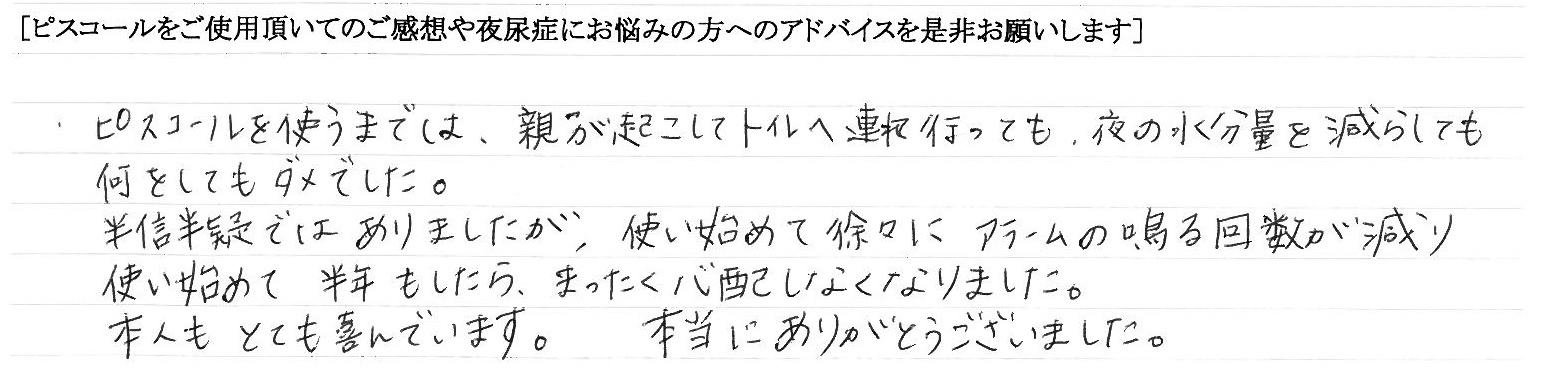 [ピスコールをご使用頂いてのご感想や夜尿症にお悩みの方へのアドバイスを是非お願いします]
・ピスコールを使うまでは、親が起こしてトイレへ連れ行っても、夜の水分量を減らしても
何をしてもダメでした。
半信半疑ではありましたが、使い始めて徐々に アラームの鳴る回数が減り
使い始めて 半年もしたら、まったく心配しなくなりました。
本人も とても喜んでいます。 本当にありがとうございました。